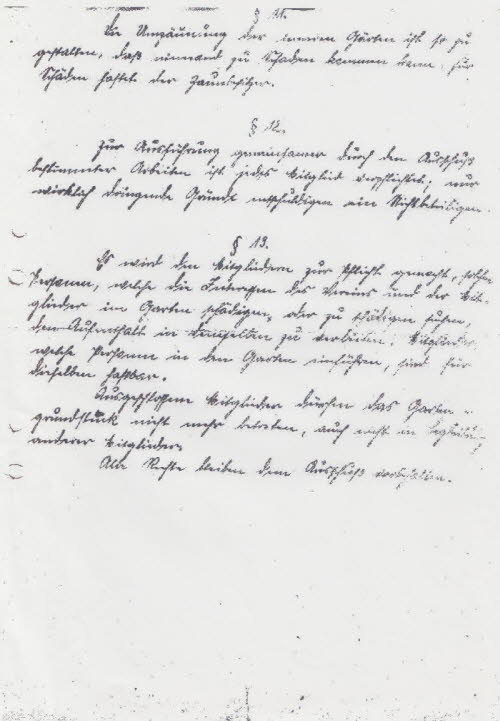 § 11.
Die Umzäunung der inneren Gärten ist so zu
gestalten, daß niemand zu Schaden kommen kann. Für
Schäden haftet der Zaunbesitzer.
§ 12.
Zur Ausführung gemeinsamer durch den Ausschuß
bestimmter Arbeiten ist jedes Mitglied verpflichtet; nur
wirklich dringende Gründe entschuldigen ein Nichtbeteiligen.
§ 13.
Es wird den Mitgliedern zur Pflicht gemacht, solchen
Personen, welche die Interessen des Vereins und der Mit-
glieder im Garten schädigen, oder zu schädigen suchen,
den Aufenthalt in demselben zu verbieten. Mitglieder,
welche Personen in den Garten einführen, sind für
dieselben haftbar.
Ausgeschlossene Mitglieder dürfen das Garten-
grundstück nicht mehr betreten, auch nicht in
anderer Mitglieder.
Alle Rechte bleiben dem Ausschuß vorbehalten.